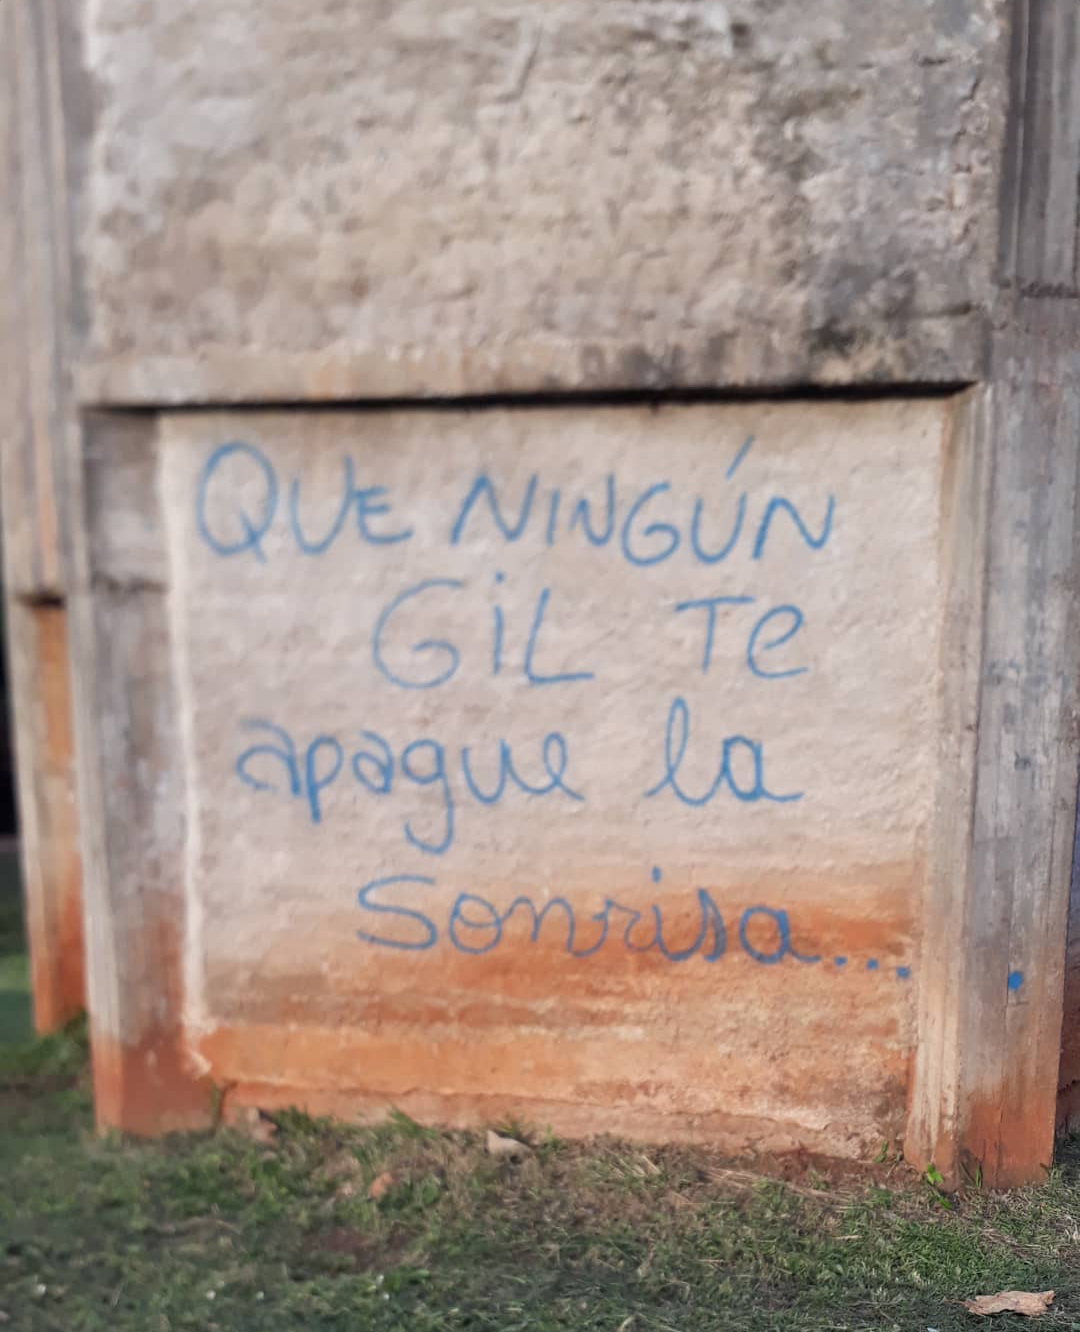 QUE NINGÚN
GiL Te
apague la
Sonrisa...